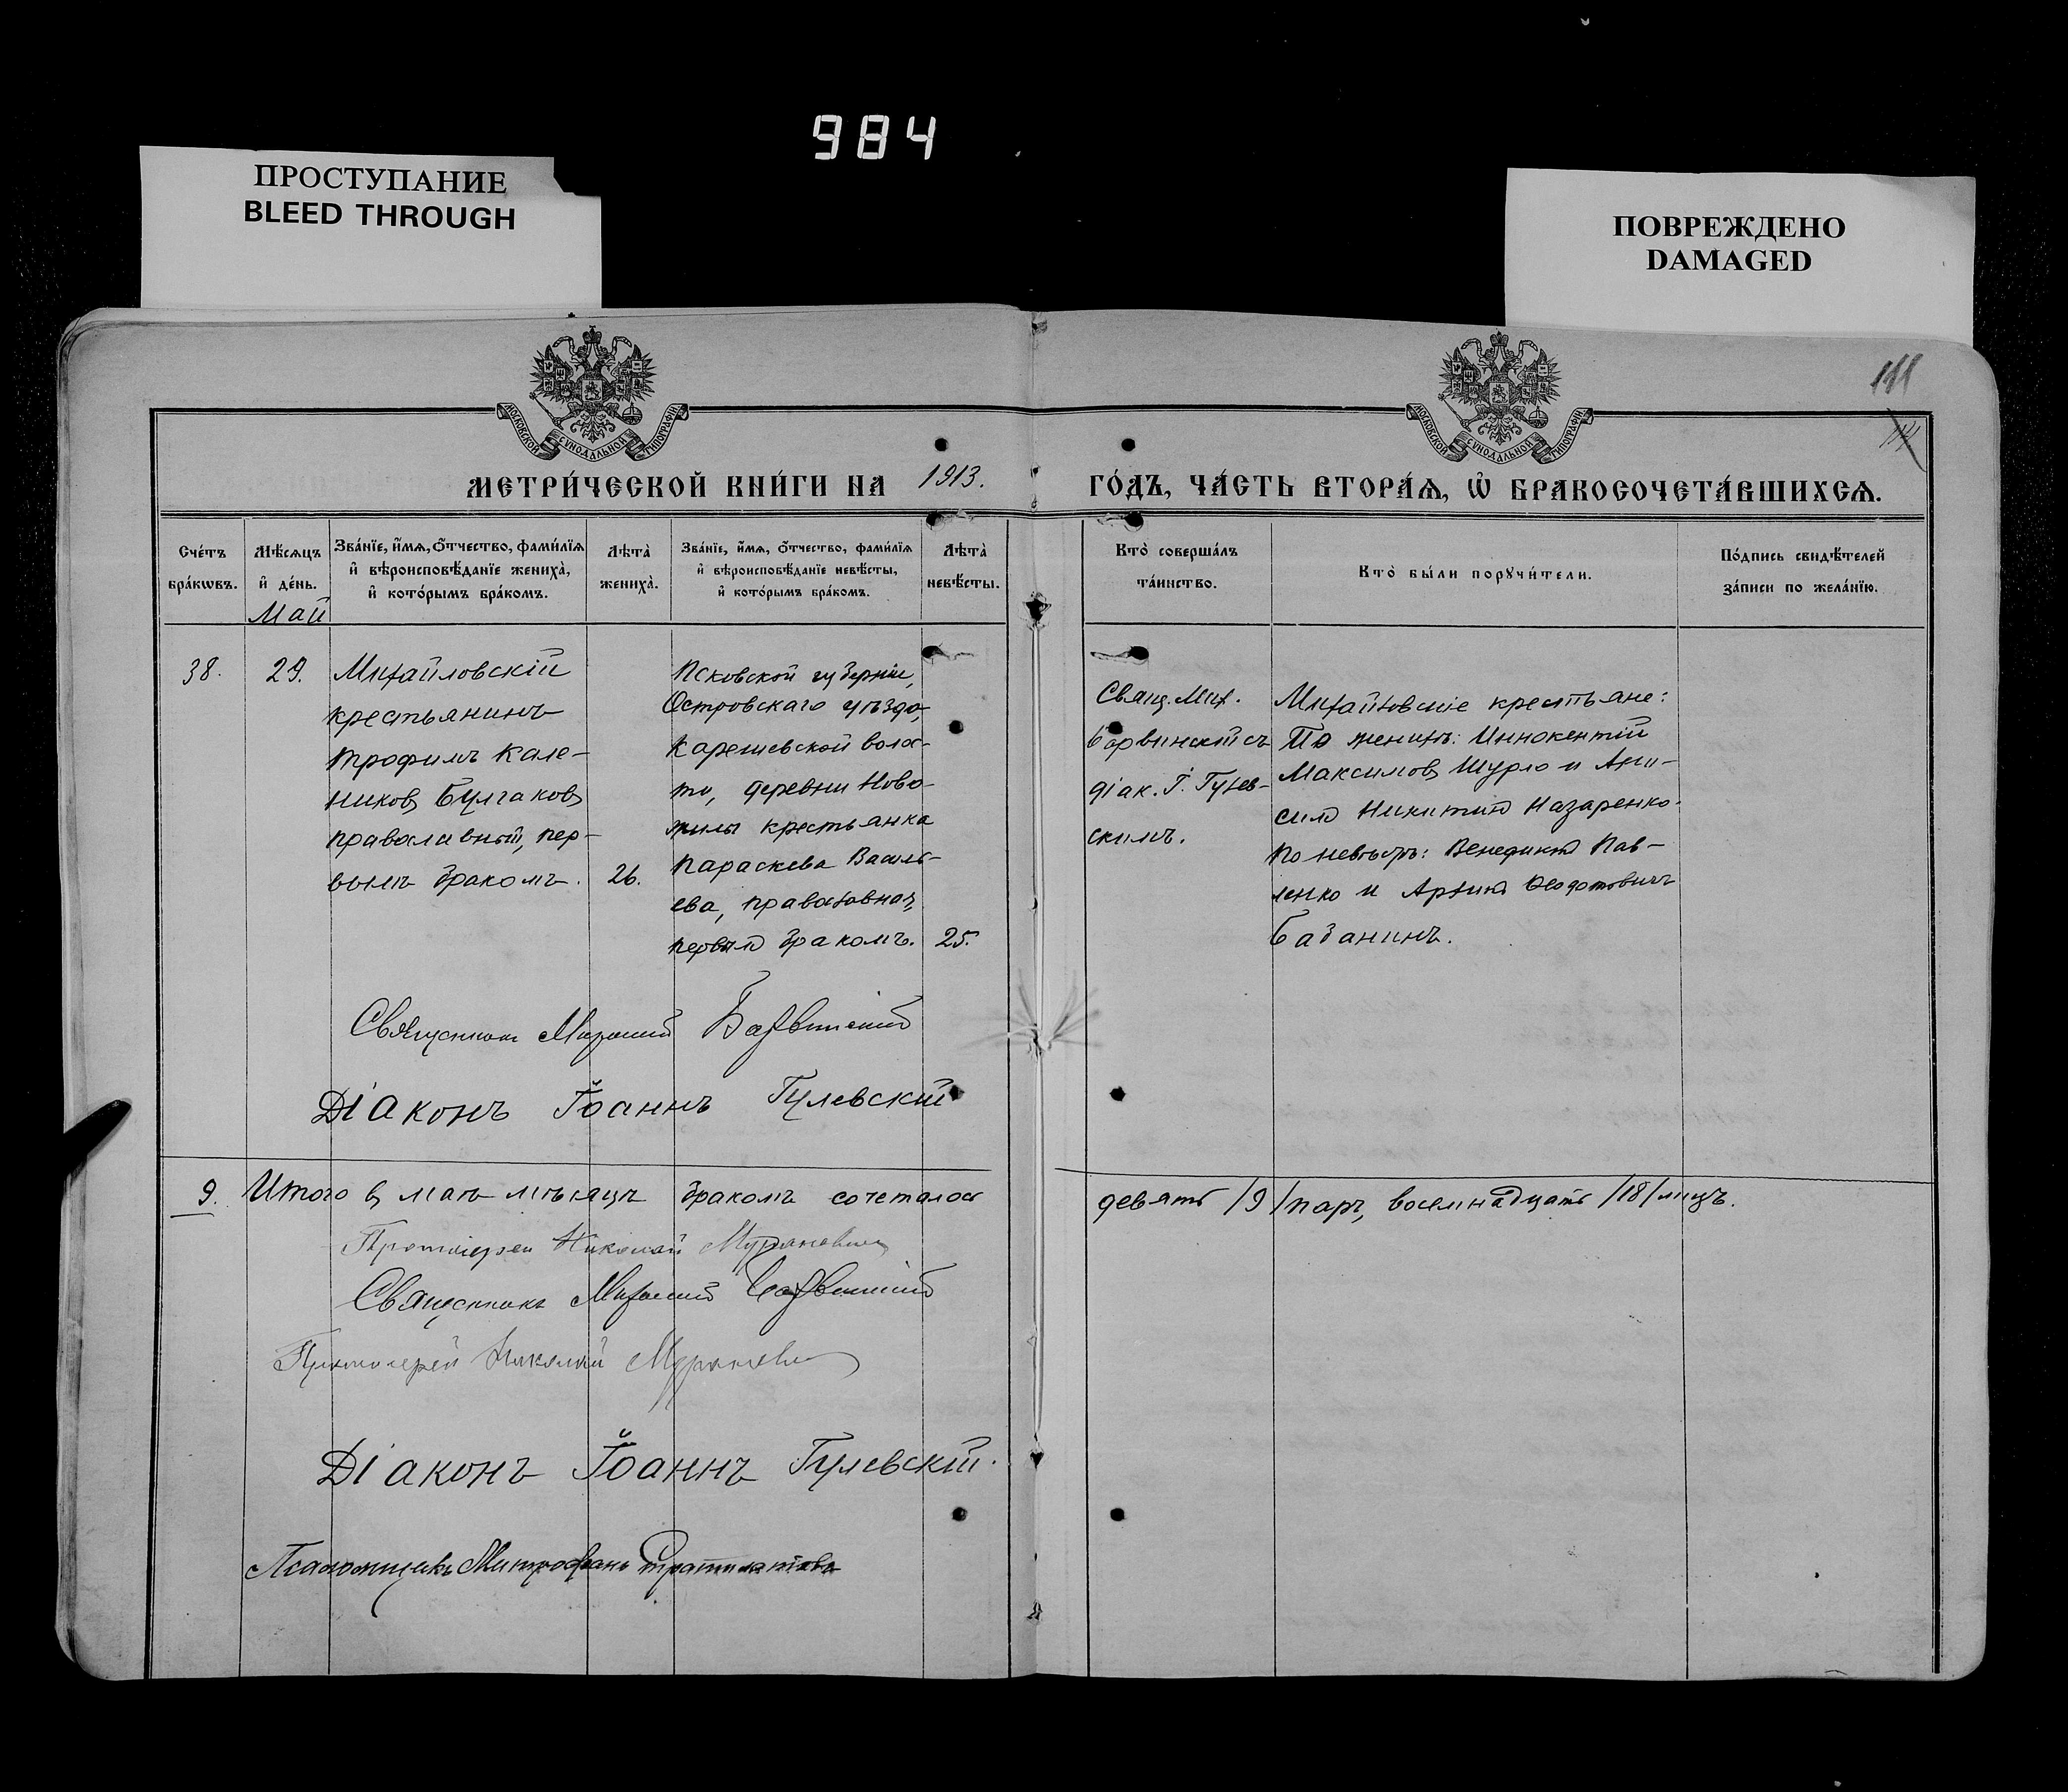 984
ПРОСТУПАНИЕ
BLEED THROUGH
ПОВРЕЖДЕНО
DAMAGED
МОСКОВСКОЙ СѴНОДАЛЬНОЙ ТИПОГРАФІИ
МОСКОВСКОЙ СѴНОДАЛЬНОЙ ТИПОГРАФІИ
МЕТРИ́ЧЕСКОЙ КНИ́ГИ НА 1913.
ГО́ДЪ, ЧА́СТЬ ВТОРА́Ѧ, Ѡ҆ БРАКОСОЧЕТА́ВШИХСѦ.
Сче́тъ
бра́кѡвъ.
Мѣ́сяцъ
и҆ де́нь.
Май
Зва́нїе, и҆́мѧ, ѻ҆́тчество, фами́лїѧ
и҆ вѣроисповѣ́данїе жениха̀,
и҆ кото́рымъ бра́комъ.
Лѣта̀
жениха̀.
Зва́нїе, и҆́мѧ, ѻ҆́тчество, фами́лїѧ
и҆ вѣроисповѣ́данїе невѣ́сты,
и҆ кото́рымъ бра́комъ.
Лѣта̀
невѣ́сты.
Кто̀ соверша́лъ
та́инство.
Кто̀ бы́ли порꙋчи́тели.
По́дпись свидѣ́телей
за́писи по жела́нїю.
38.
29.
Михайловскій
крестьянинъ
Трофимъ Кале-
никовъ Булгаковъ
православный, пер-
вымъ бракомъ.
26.
Псковской губерніи,
Островскаго уѣзда,
Карешевской волос-
ти, деревни Ново-
жилы крестьянка
Параскева Василь-
ева, православная,
первымъ бракомъ.
25.
Свящ. Мих.
Барвинскій съ
діак. І. Гулев-
скимъ.
Михайловскіе крестьяне:
По женихѣ: Иннокентій
Максимовъ Шурло и Ани-
симъ Никитинъ Назаренко.
По невѣстѣ: Венедиктъ Пав-
ленко и Архипъ Ѳеодотовичъ
Бабанинъ.
Священникъ Михаилъ Барвинскій
Діаконъ Іоаннъ Гулевскій
9. Итого въ маѣ мѣсяцѣ бракомъ сочеталось
девять /9/ паръ, восемнадцать /18/ лицъ.
Протоіерей Николай
Священникъ Михаилъ Барвинскій
Протоіерей Николай
Діаконъ Іоаннъ Гулевскій.
Псаломщикъ Митрофанъ